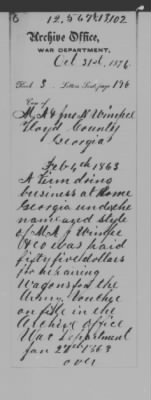 Archive Office,
WAR DEPARTMENT,
Oct 31st, 1876
Book 3, Letters Sent, page 196
Case of
M. A. & Jno N Wimpee
Floyd County
Georgia
Feb 4th 1863
A Firm doing
business at Rome
Georgia under the
name and style
of M. A. J Wimpee
& Co was paid
fifty five dollars
for repairing
Wagons for the
Army. Voucher
on file in the
Archive Office
War Department
Jan 27th 1863
over